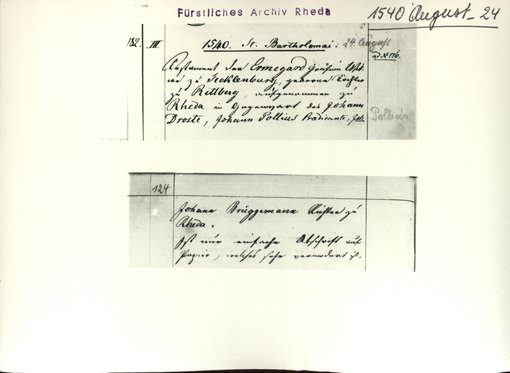 Fürstliches Archiv Rheda
1540 August 24
182. III 1540. St. Bartholomäi: 24. August
ad № 176.
Testament der Ermegard Gräfin Wit
we zu Tecklenburg, geborne Tochter
zu Rettberg, aufgenommen zu
Rheda in Gegenwart des Johann
Droste, Johann Pollius Prädicante,
Pollius
124
Johann Brüggemann Küster zu
Rheda.
Ist nur einfache Abschrift auf
Papier, welches sehr vermodert ist.